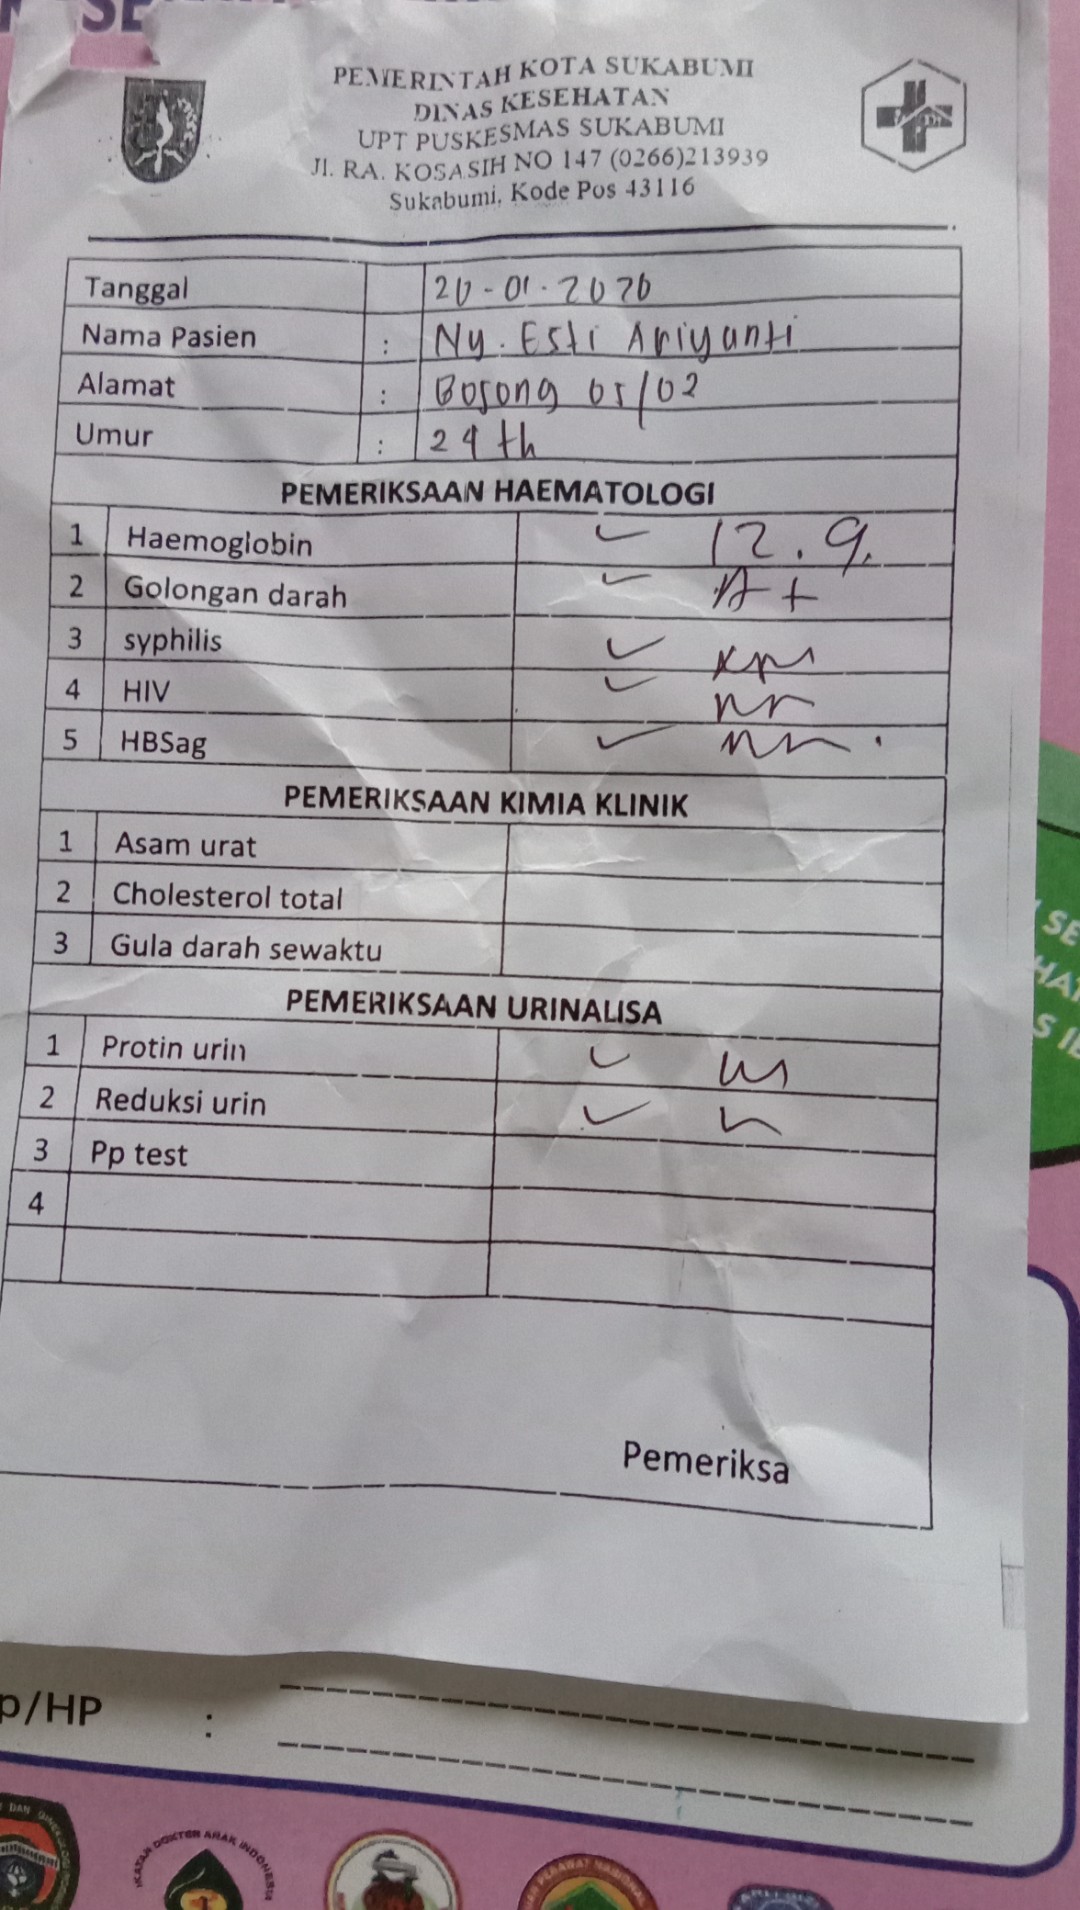 PEMERINTAH KOTA SUKABUMI
DINAS KESEHATAN
UPT PUSKESMAS SUKABUMI
Jl. RA. KOSASIH NO 147 (0266)213939
Sukabumi, Kode Pos 43116
Tanggal 20-01-2020
Nama Pasien : Ny. Esti Ariyanti
Alamat : 05/02
Umur : 29 th
PEMERIKSAAN HAEMATOLOGI
1 Haemoglobin ✓ 12.9.
2 Golongan darah ✓ A+
3 syphilis ✓
4 HIV ✓ nr
5 HBSag ✓ nr.
PEMERIKSAAN KIMIA KLINIK
1 Asam urat
2 Cholesterol total
3 Gula darah sewaktu
PEMERIKSAAN URINALISA
1 Protin urin ✓
2 Reduksi urin ✓
3 Pp test
4
Pemeriksa
p/HP :